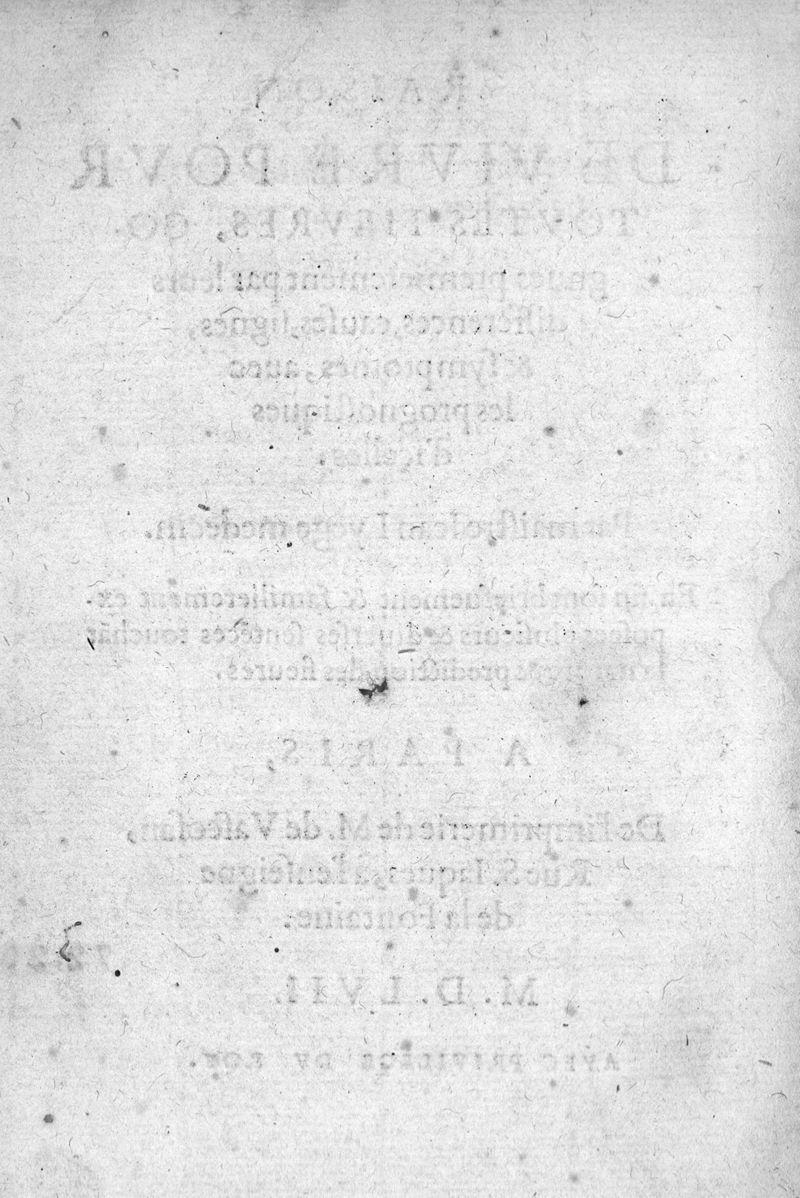 RAISON
DE VIVRE POVR
TOVTES FIEVRES, CO-
gnues premierement par leurs
differences, causes, signes,
& symptomes, auec
les prognostiques
d'icelles.
Par maistre Iean Lyege medecin.
En fin sont briefuement & familierement ex-
posees plusieurs & diuerses sentẽces touchãt
predictiõ des fieures.
A PARIS,
De l'imprimerie de M. de Vascosan,
Rue S. Iaques, à l'enseigne
de la Fontaine.
M. D. LVII.
AVEC PRIVILEGE DV ROY.